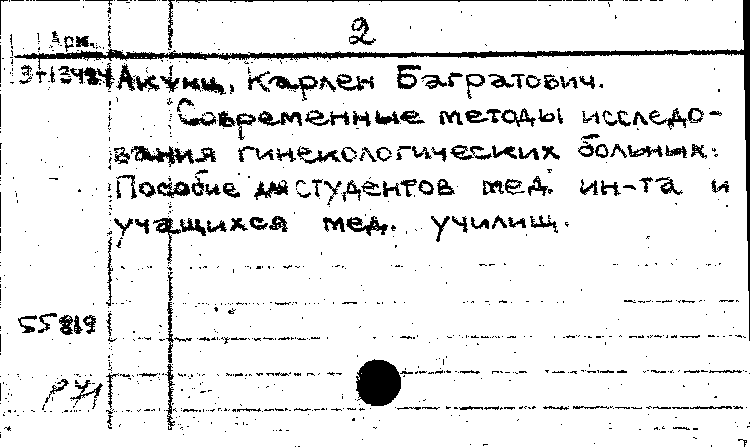 2
Арм.
Акунц, Карлен Багратович.
Современные методы исследо-
вания гинекологических больных:
Пособие для студентов мед. ин-та и
учащихся мед. училищ.
55819
р 71